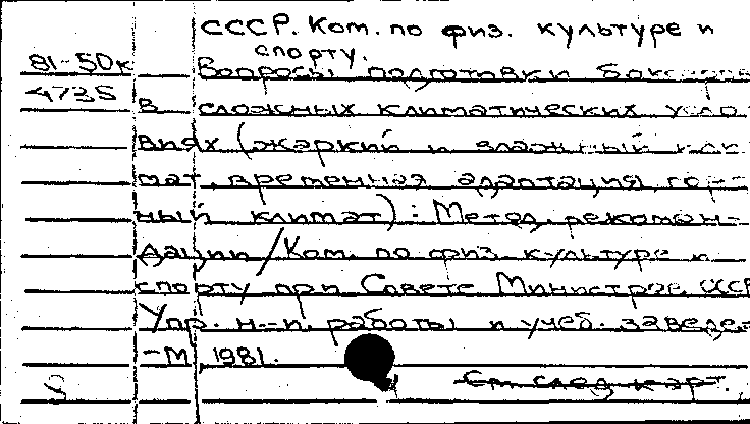 СССР. Ком. по физ. культуре и
спорту.
81-50к Вопросы подготовки боксеров
4735 в сложных климатических усло
виях (жаркий и влажный кли
мат, временная адаптация, гор-
ный климат): Метод. рекомен-
дации / Ком. по физ. культуре и
спорту при Совете Министров СССР
Упр. н.-и. работы и учеб. заведе-
-М, 1981.
См. след. карт.